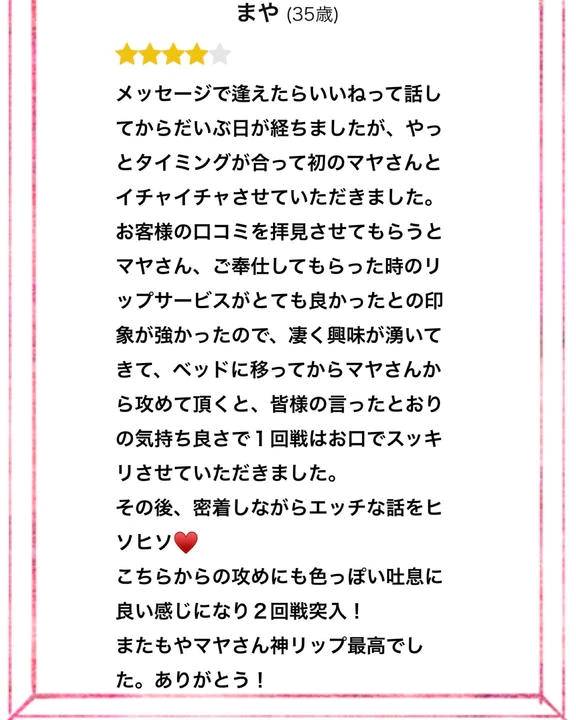 まや (35歳)
メッセージで逢えたらいいねって話し
てからだいぶ日が経ちましたが、やっ
とタイミングが合って初のマヤさんと
イチャイチャさせていただきました。
お客様の口コミを拝見させてもらうと
マヤさん、ご奉仕してもらった時のリ
ップサービスがとても良かったとの印
象が強かったので、凄く興味が湧いて
きて、ベッドに移ってからマヤさんか
ら攻めて頂くと、皆様の言ったとおり
の気持ち良さで１回戦はお口でスッキ
リさせていただきました。
その後、密着しながらエッチな話をヒ
ソヒソ♥️
こちらからの攻めにも色っぽい吐息に
良い感じになり２回戦突入！
またもやマヤさん神リップ最高でし
た。ありがとう！